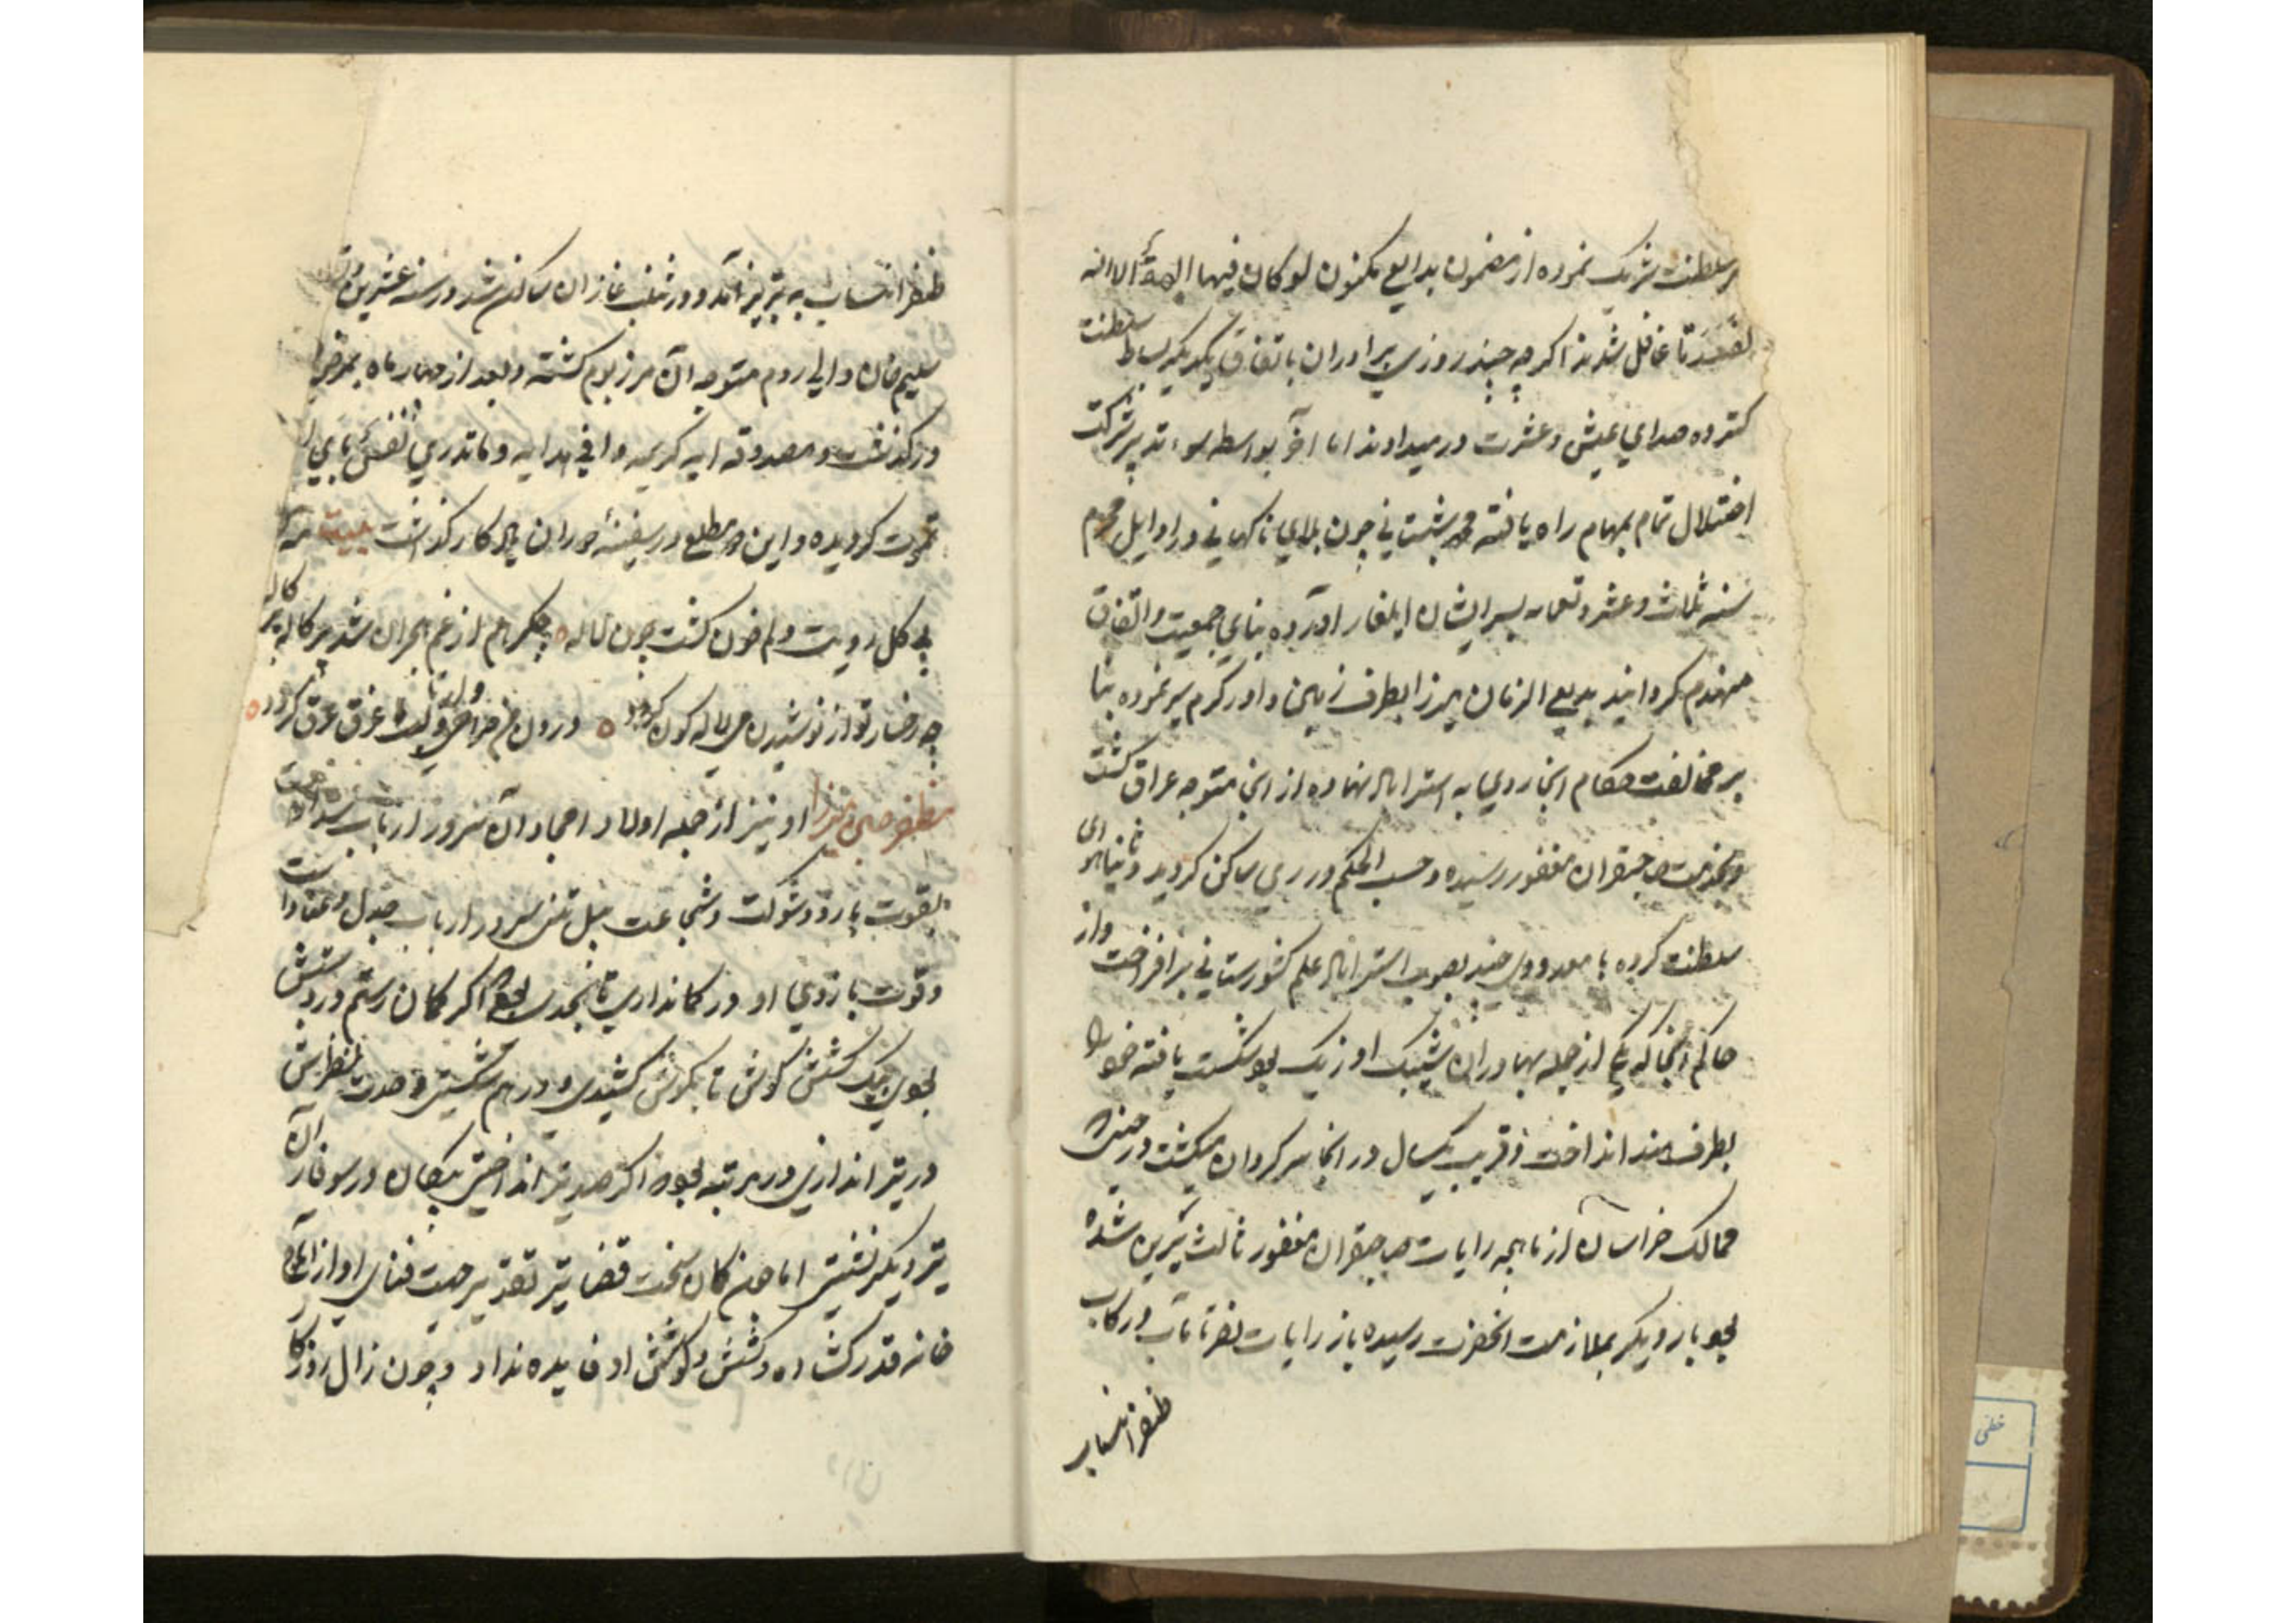 در سلطنت شریک نموده از مضمون بدایع مکنون لو کان فیهما الهة الا الله
لفسدتا غافل شدند اگرچه چند روزی برادران باتفاق یکدیگر بساط سلطنت
گسترده صدای عیش و عشرت در میدادند اما آخر بواسطه سوء تدبیر شرکت
اختلال تمام بمهام راه یافته محمد شیبانی چون بلای ناگهانی در اوایل محرم
سنه ثلاث و عشر و تسعمایه بسر ایشان ایلغار آورده بنای جمعیت و اتفاق
منهدم گردانید بدیع الزمان میرزا بطرف زمین داور گرم سیر نموده بنا
بر مخالفت حکام آنجا روی به استراباد نهاده از آنجا متوجه عراق گشت
و بخدمت صاحبقران مغفور رسیده و حسب الحکم در ری ساکن گردید و ثنیا هوای
سلطنت کرده با معدودی چند بصوب استراباد علم کشورستانی برافراخت و از
حاکم آنجا که یکی از جمله بهادران شیبک اوزبک بود شکست یافته خود را
بطرف هند انداخت و قریب یکسال در آنجا سرگردان میگشت در حینی که
ممالک خراسان از ماهچه رایات صاحبقران مغفور ثالث نیرین شده
بود بار دیگر بملازمت آنحضرت رسیده باز رایات نصرت مآب در رکاب
ظفر انتساب
ظفر انتساب به تبریز آمد و در شنب غازان ساکن شد در سنه عشرین و
سلیم خان والی روم متوجه آن مرز بوم گشته و بعد از چهار ماه بمرض
درگذشت و مصدوقه آیه کریمه وافی هدایه و ما تدری نفس بای
تموت گردیده و این مطلع در سفینه دوران یادگار گذاشت بیت مه
بی گل رویت دلم خون گشت چون لاله جگر هم از غم هجران شد پرگاله پرگاله
چه رخسار تو از نوشیدن می لاله گون گردد درون غرق عرق گردد
مظفر حسین میرزا او نیز از جمله اولاد امجاد آن سرور ارباب سداد
بقوت بازو و شوکت و شجاعت سرور ارباب جدل و عناد است
و قوت بازوی او در کمانداری تا بحدی بود که اگر کمان رستم در دستش
بودی بیک کشش گوش تا گوش کشیدی و در هم شکستی و حدت نظرش
در تیر اندازی در مرتبه بود که اگر صد تیر انداختی پیکان در سوفار آن
تیر دیگر نشستی اما چون کمان سخت قضا تیر تقدیر جهت فنای او از
خانه قدر گشاده و کشش و کوشش او فایده نداد و چون زال روزگار
خطی